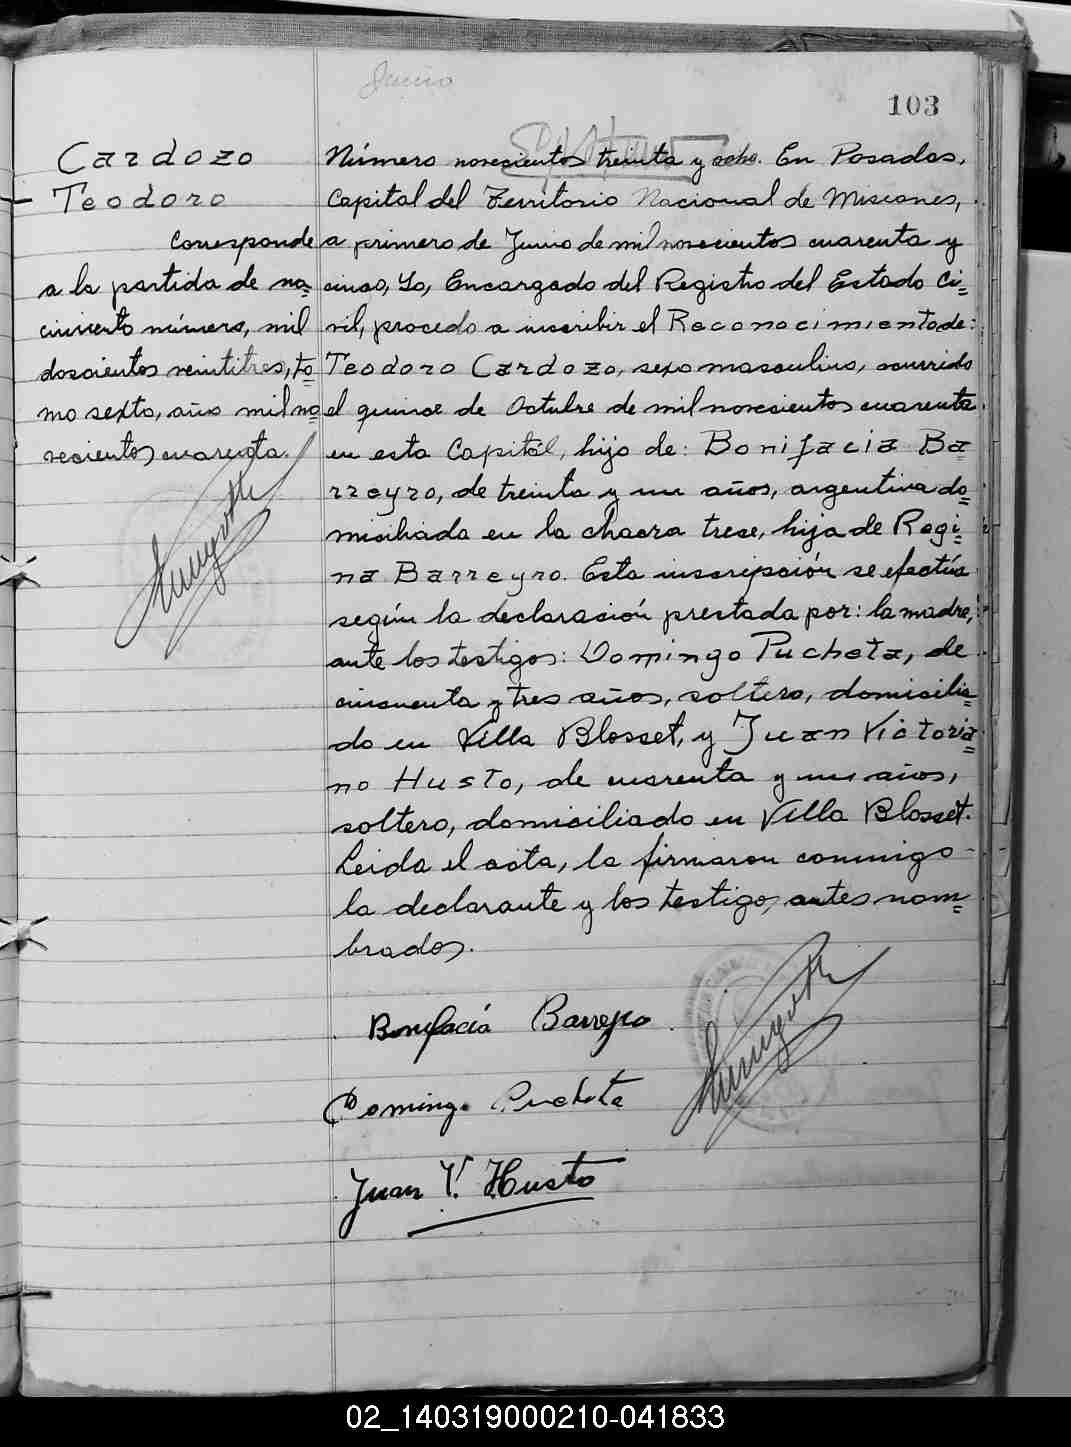 Junio
103
Cardozo
Teodoro
Corresponde
a la partida de na=
cimiento número, mil
doscientos veintitres, to=
mo sexto, año mil no
vecientos cuarenta.
Número novecientos treinta y ocho. En Posadas,
Capital del Territorio Nacional de Misiones,
a primero de Junio de mil novecientos cuarenta y
cinco, Yo, Encargado del Registro del Estado Ci=
vil, procedo a inscribir el Reconocimiento de:
Teodoro Cardozo, sexo masculino, ocurrido
el quince de Octubre de mil novecientos cuarenta
en esta Capital, hijo de: Bonifacia Ba=
rreyro, de treinta y un años, argentina do=
miciliada en la chacra trece, hija de Regi=
na Barreyro. Esta inscripción se efectúa
según la declaración prestada por: la madre,
ante los testigos: Domingo Pucheta, de
cincuenta y tres años, soltero, domicilia=
do en Villa Blosset, y Juan Victoria=
no Husto, de cuarenta y un años,
soltero, domiciliado en Villa Blosset.
Leida el acta, la firmaron conmigo
la declarante y los testigos antes nom=
brados.
Bonifacia Barreyro
Domingo Pucheta
Juan V. Husto
02_140319000210-041833